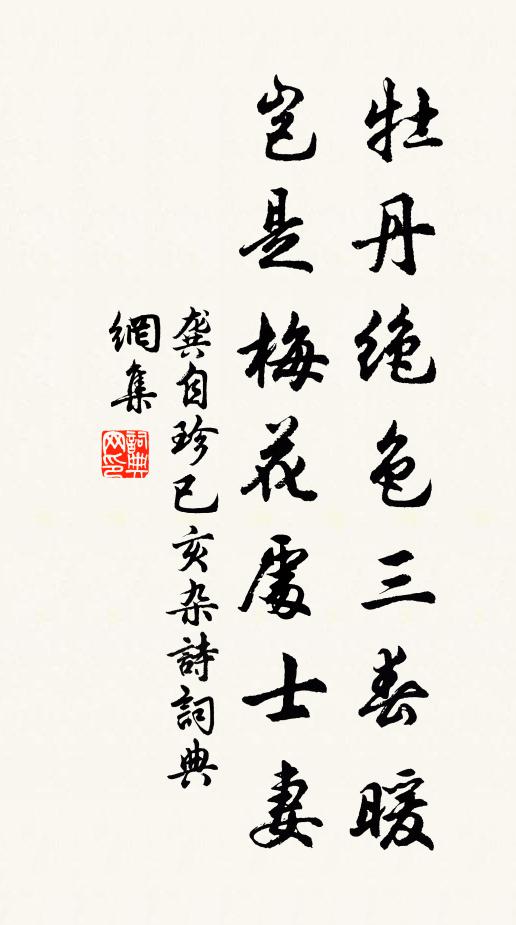 牡丹绝色三春暖
岂是梅花處士妻
龚自珍己亥杂詩詞典
網集
詞典
网印